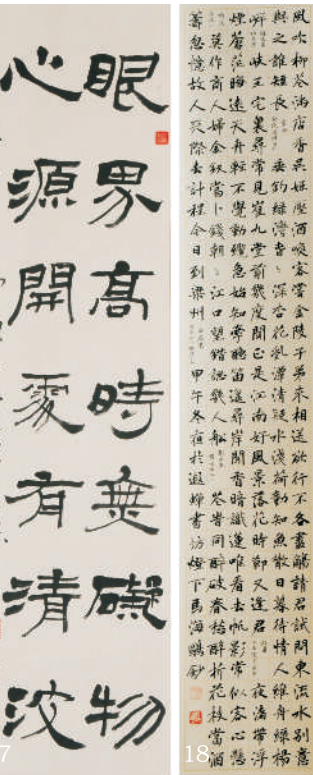 眼界高時無礙物
心源開處有清波
17
風吹柳花滿店香吳姬壓酒喚客嘗金陵子弟來相送欲行不行各盡觴請君試問東流水別意
與之誰短長 垂釣綠灣春々深杏花亂潭清疑水淺荷動知魚散日暮待情人維舟綠楊
岸 岐王宅裏尋常見崔九堂前幾度聞正是江南好風景落花時節又逢君 夜渚帶浮
煙蒼茫晦遠天舟輕不覺動纜急始知牽聽笛遙尋岸聞香暗識蓮唯看去帆影常似客心懸
莫作商人婦金釵當卜錢朝々江口望錯認幾人船 花時同醉破春愁醉折花枝當酒
籌忽憶故人天際去計程今日到梁州 甲午冬 於 書坊燈下馬海鵬鈔
18